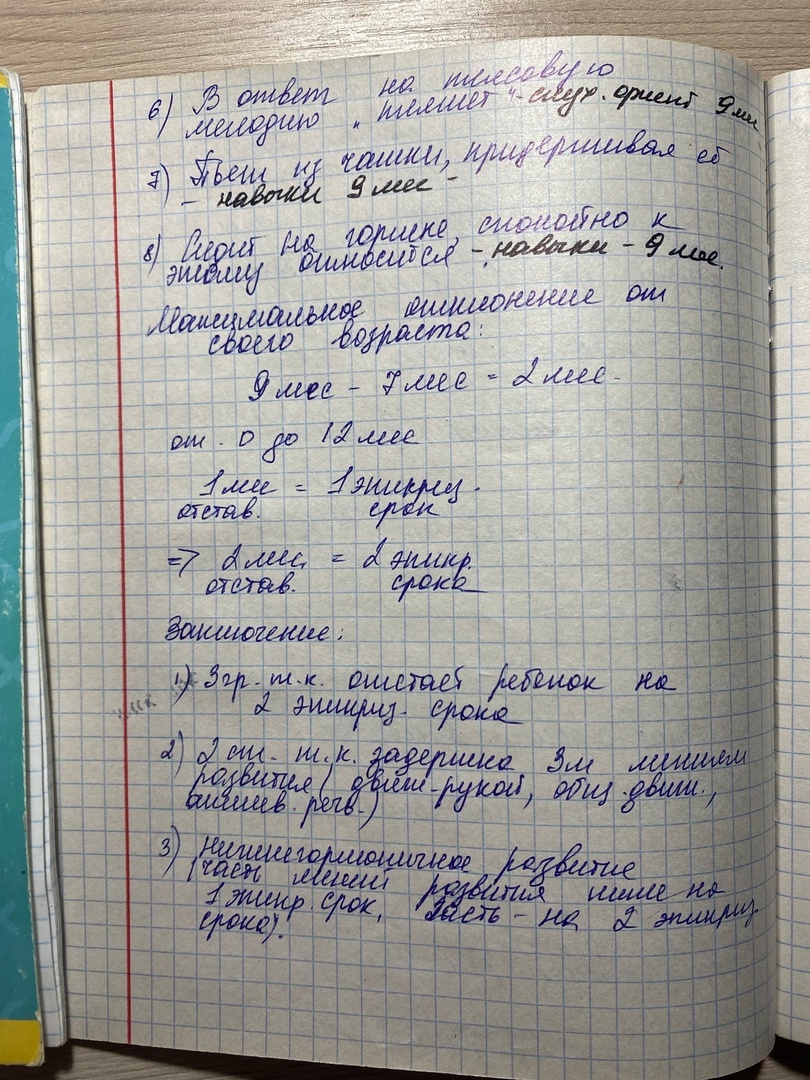 6) В ответ на плясовую
мелодию "пляшет" - слух. ориент 9 мес
7) Пьет из чашки, придерживая её
- навыки 9 мес -
8) Сидит на горшке, спокойно к
этому относится - навыки - 9 мес.
Максимальное отклонение от
своего возраста:
9 мес - 7 мес = 2 мес.
от 0 до 12 мес
1 мес = 1 эпикриз.
отстав. срок
=> 2 мес. = 2 эпикр.
отстав. срока
Заключение:
1) 3 гр. т.к. отстаёт ребенок на
2 эпикриз. срока
2) 2 ст. т.к. задержка 3м линиям
развития (движ. рукой, общ. движ.,
актив. речь.)
3) нижнегармоничное развитие
(часть линий развития ниже на
1 эпикр. срок, часть - на 2 эпикриз
срока).